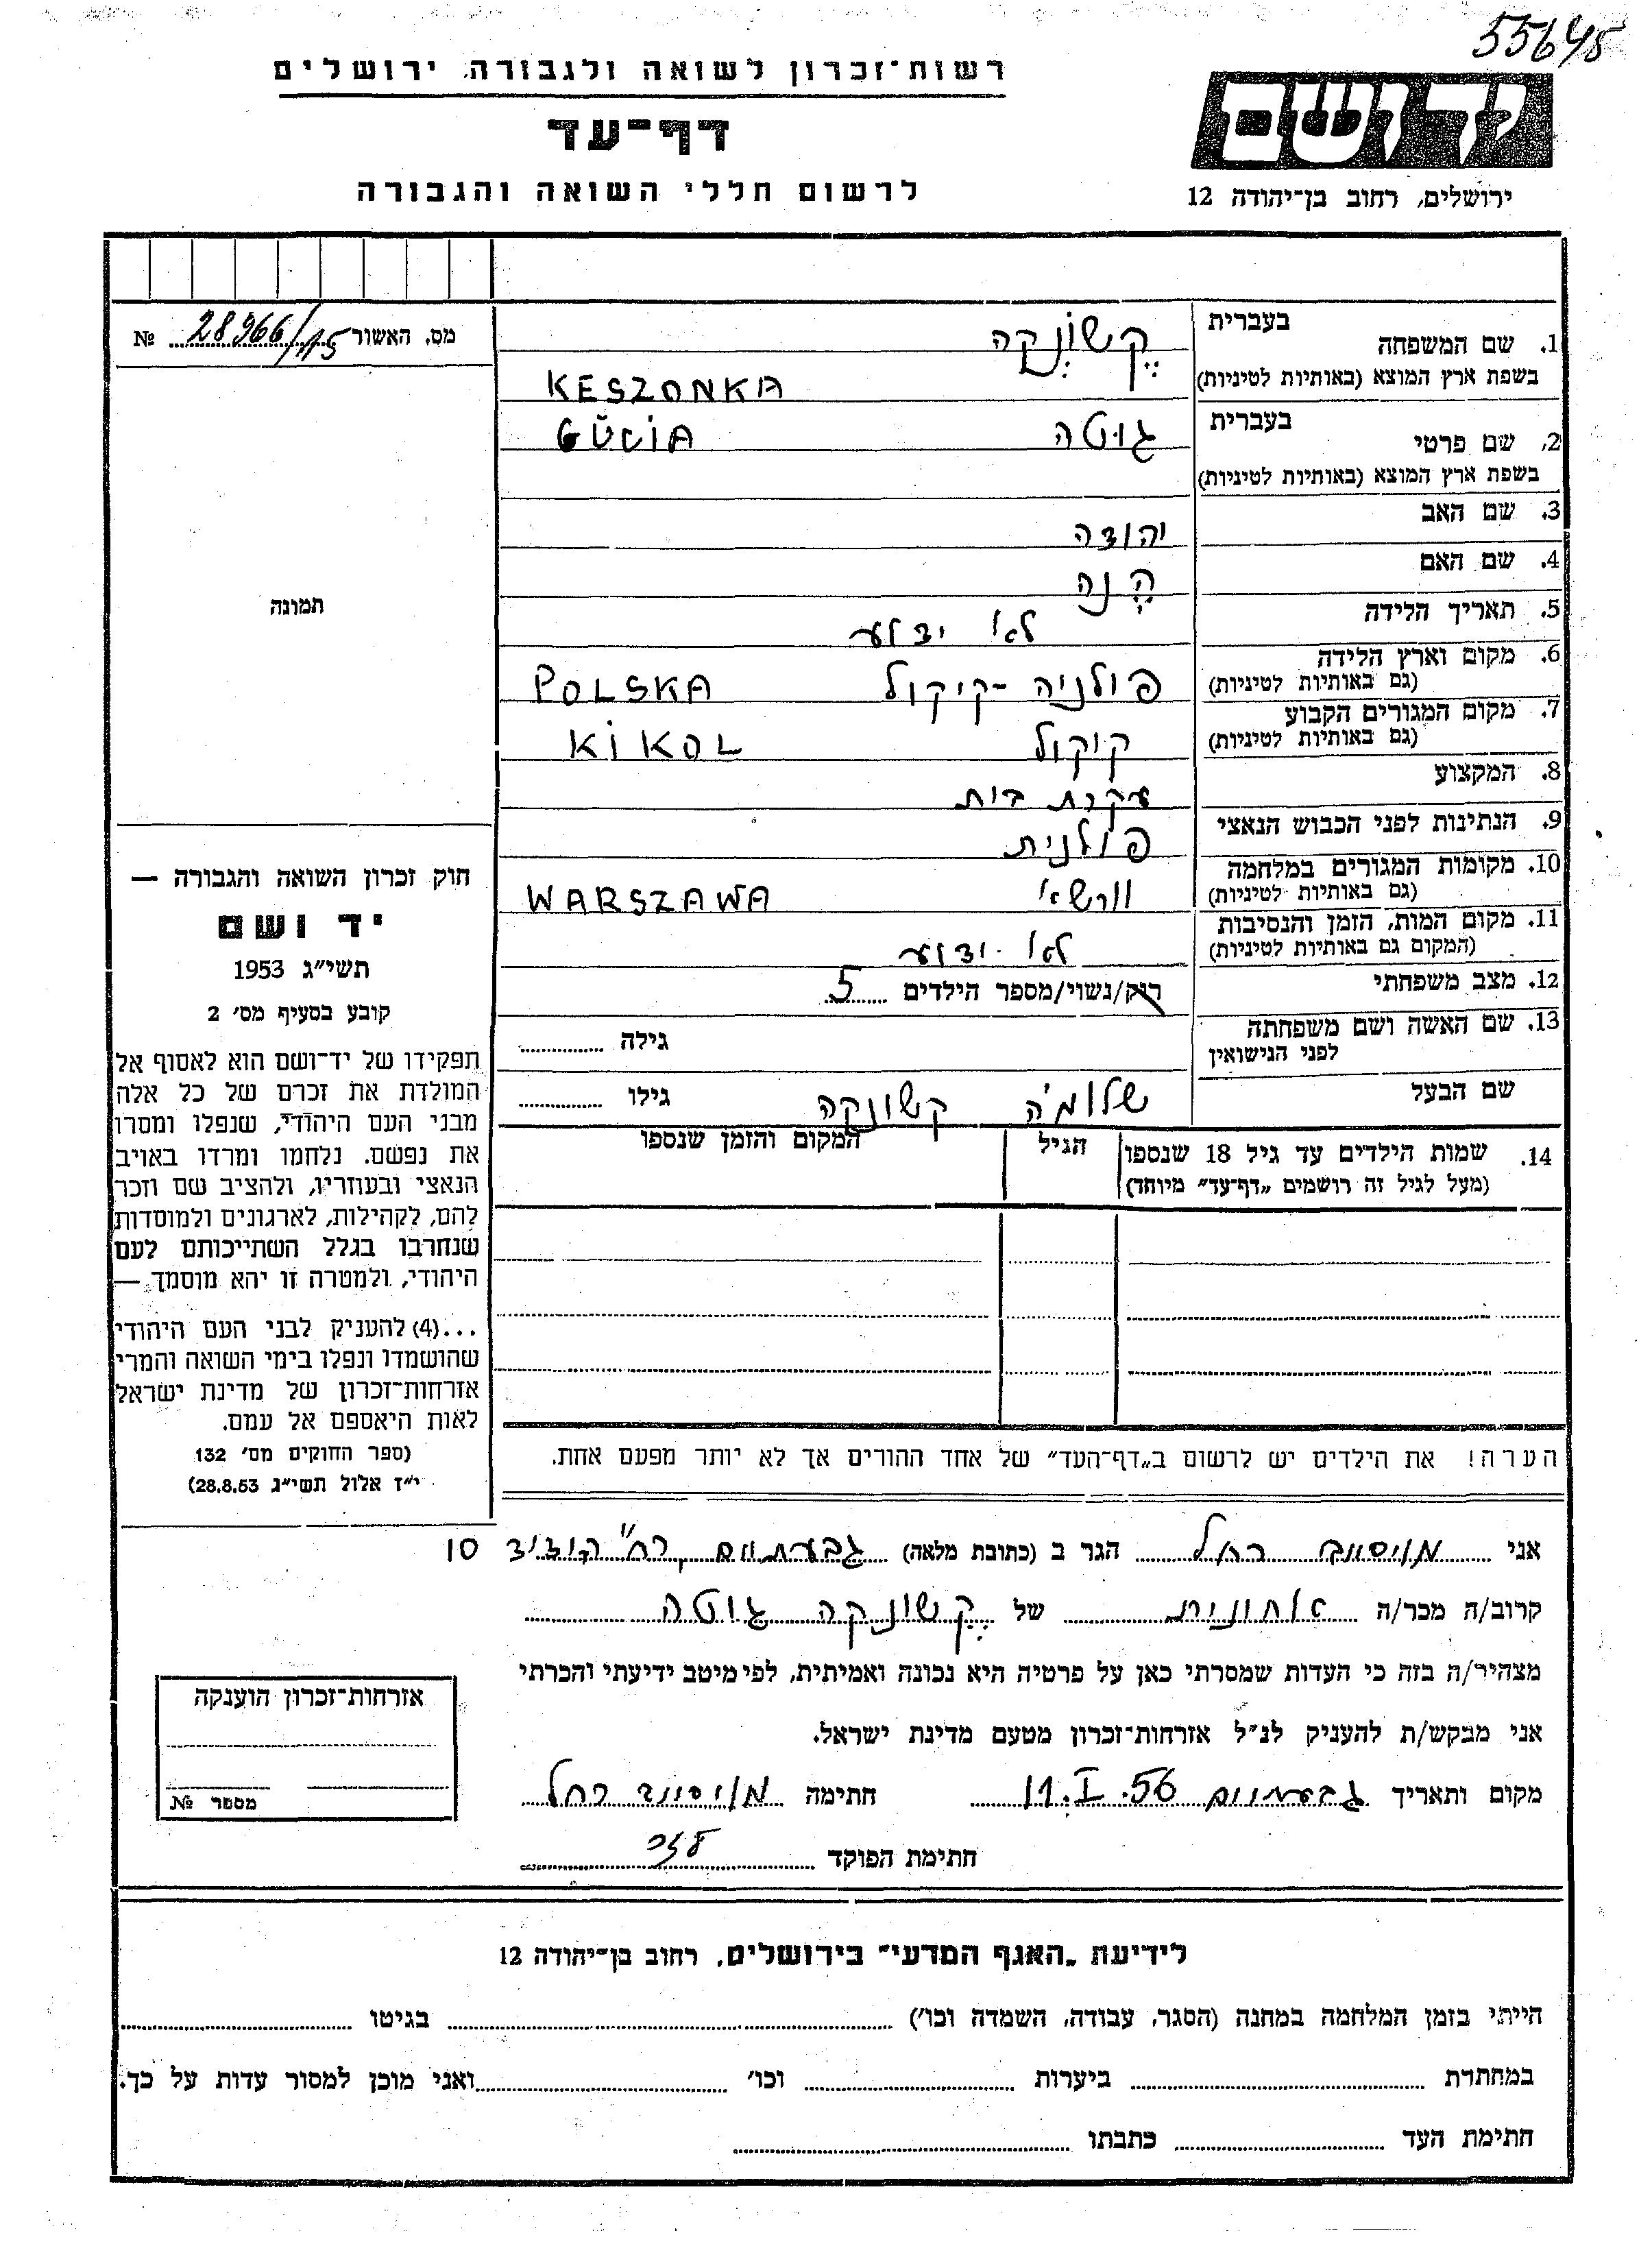 55645
רשות־זכרון לשואה ולגבורה, ירושלים
ידושם
דף־עד
לרשום חללי השואה והגבורה
ירושלים, רחוב בן־יהודה 12
מס. האשור 28966/115 №
תמונה
חוק זכרון השואה והגבורה —
יד ושם
תשי״ג 1953
קובע בסעיף מס׳ 2
תפקידו של יד־ושם הוא לאסוף אל
המולדת את זכרם של כל אלה
מבני העם היהודי, שנפלו ומסרו
את נפשם, נלחמו ומרדו באויב
הנאצי ובעוזריו, ולהציב שם וזכר
להם, לקהילות, לארגונים ולמוסדות
שנחרבו בגלל השתייכותם לעם
היהודי, ולמטרה זו יהא מוסמך —
...(4) להעניק לבני העם היהודי
שהושמדו ונפלו בימי השואה והמרי
אזרחות־זכרון של מדינת ישראל
לאות היאספם אל עמם.
(ספר החוקים מס׳ 132
י״ז אלול תשי״ג 28.8.53)
1. שם המשפחה בעברית קשונקה
בשפת ארץ המוצא (באותיות לטיניות) KESZONKA
2. שם פרטי בעברית גוטה GŬCIA
בשפת ארץ המוצא (באותיות לטיניות)
3. שם האב יהודה
4. שם האם הנה
5. תאריך הלידה לא ידוע
6. מקום וארץ הלידה (גם באותיות לטיניות) פולניה - קיקול POLSKA
7. מקום המגורים הקבוע (גם באותיות לטיניות) קיקול KIKOL
8. המקצוע עקרת בית
9. הנתינות לפני הכבוש הנאצי פולנית
10. מקומות המגורים במלחמה (גם באותיות לטיניות) וורשא WARSZAWA
11. מקום המות, הזמן והנסיבות (המקום גם באותיות לטיניות) לא ידוע
12. מצב משפחתי רוק/נשוי/מספר הילדים 5
13. שם האשה ושם משפחתה לפני הנישואין גילה
שם הבעל שלומ'ה קשונקה גילו
14. שמות הילדים עד גיל 18 שנספו הגיל המקום והזמן שנספו
(מעל לגיל זה רושמים „דף־עד״ מיוחד)
הערה! את הילדים יש לרשום ב„דף־העד״ של אחד ההורים אך לא יותר מפעם אחת.
אני רחל הגר ב (כתובת מלאה) גבעתיים רח" 10
קרוב/ה מכר/ה אחונית של קשונקה גוטה
מצהיר/ה בזה כי העדות שמסרתי כאן על פרטיה היא נכונה ואמיתית, לפי מיטב ידיעתי והכרתי
אני מבקש/ת להעניק לנ״ל אזרחות־זכרון מטעם מדינת ישראל.
מקום ותאריך גבעתיים 11.I.56 חתימה רחל
חתימת הפוקד
אזרחות־זכרון הוענקה
מספר №
לידיעת „האגף המדעי״ בירושלים, רחוב בן־יהודה 12
הייתי בזמן המלחמה במחנה (הסגר, עבודה, השמדה וכו׳) בגיטו
במחתרת ביערות וכו׳ ואני מוכן למסור עדות על כך.
חתימת העד כתבתו